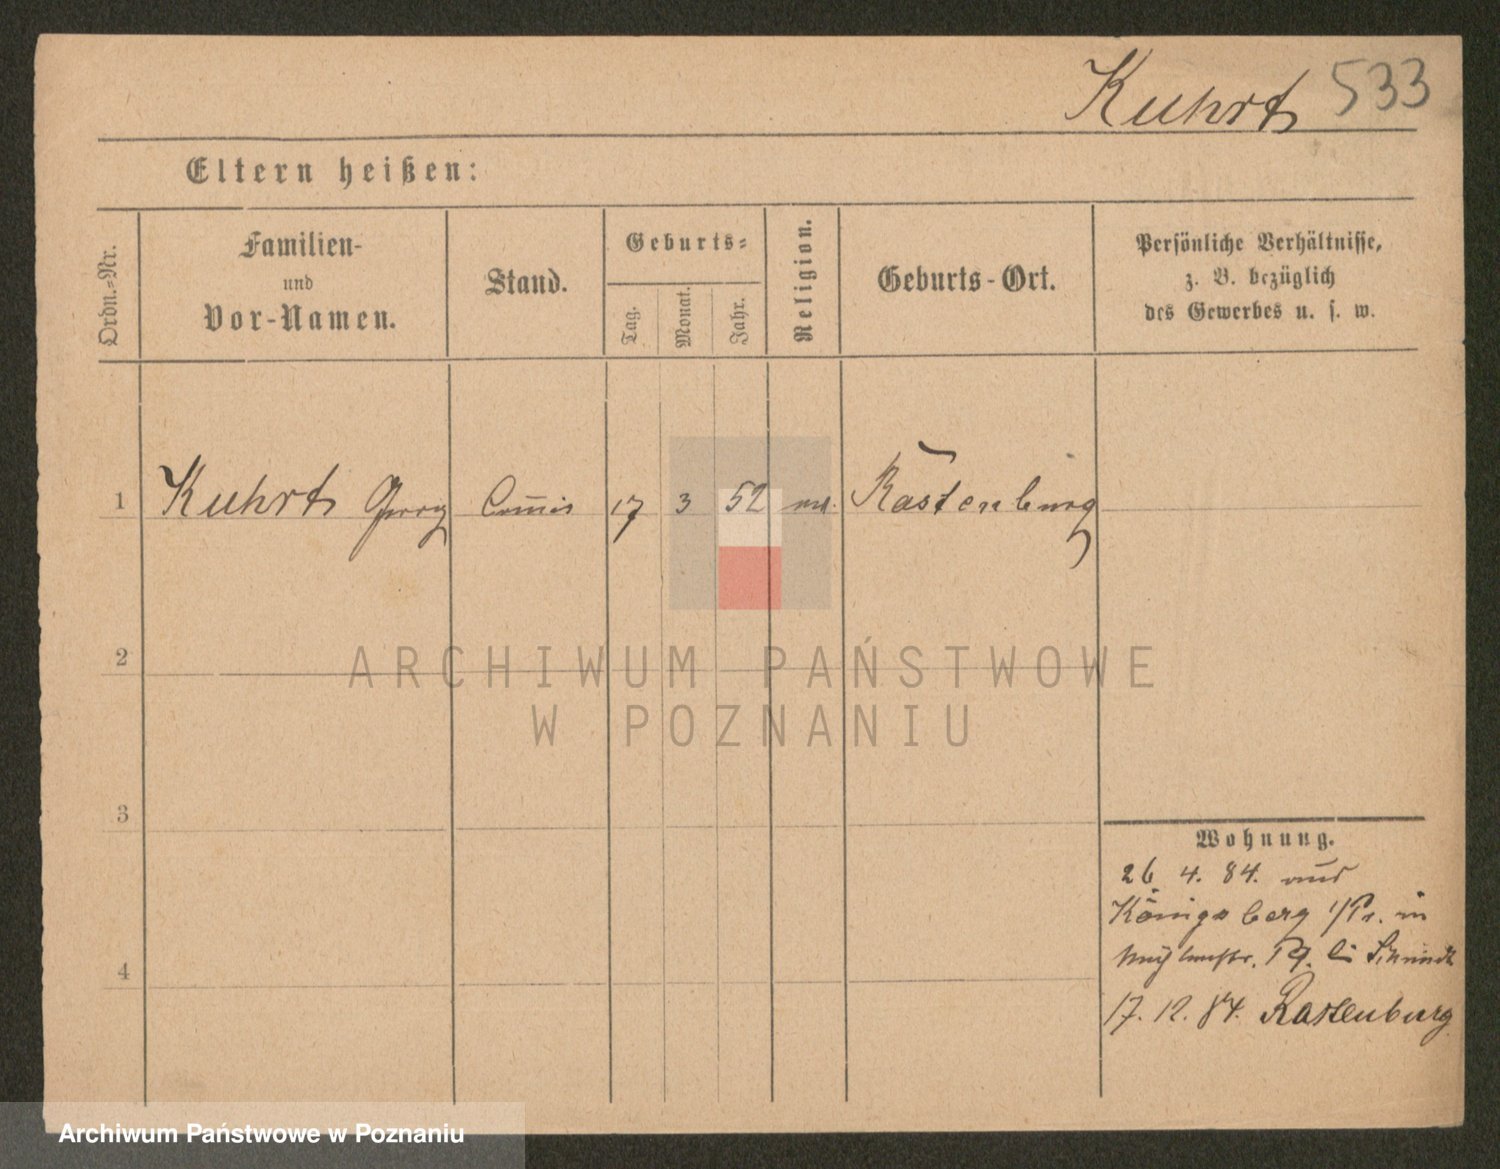 Kuhrt 533
Eltern heißen:
Ordn.-Nr.
Familien-
und
Vor-Namen.
Stand.
Geburts-
Tag.
Monat.
Jahr.
Religion.
Geburts-Ort.
Persönliche Verhältnisse,
z. B. bezüglich
des Gewerbes u. s. w.
1 Kuhrt Georg Commis 17 3 52 Rastenburg
2
3
4
Wohnung.
26 4. 84. aus
Königsberg i/Pr. in
19. bei Schmidt
17. 12. 84. Rastenburg
ARCHIWUM PAŃSTWOWE
W POZNANIU
Archiwum Państwowe w Poznaniu